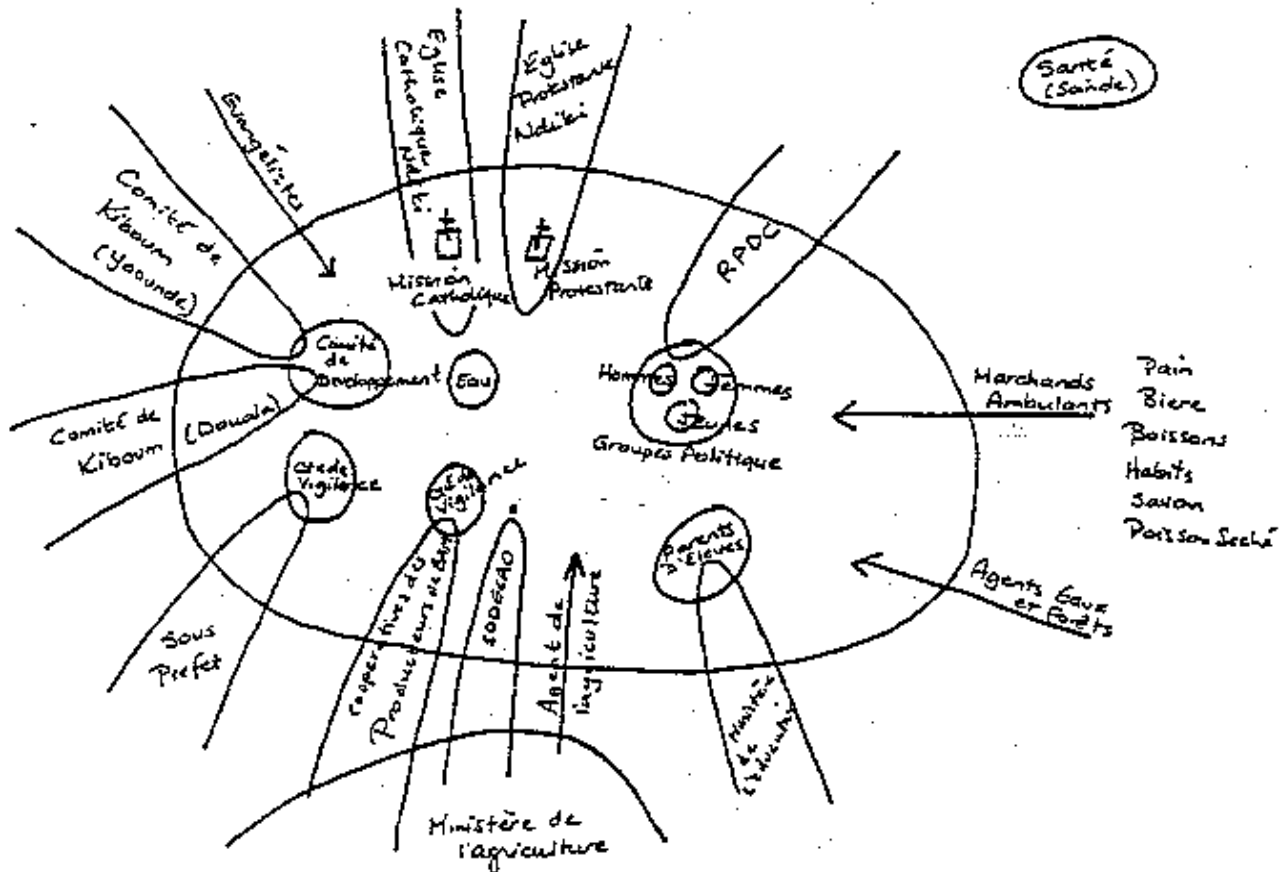 Eglise
Catholique
Ndiki
Eglise
Protestante
Ndiki
Santé
(Sandé)
Evangélistes
Comité de
Kiboum
(Yaounde)
RPDC
Mission
Catholique
Mission
Protestante
Comité
de
Developpement
Eau
Hommes
Femmes
Jeunes
Groupes Politique
Marchands
Ambulants
Pain
Biere
Boissons
Habits
Savon
Poisson Seché
Comité de
Kiboum (Douala)
Cte de
Vigilence
Vigilence
Parents
d'Eleves
Agents Eaux
et Forêts
Sous
Prefet
Cooperatives des
Producteurs de
SODECAO
Agent de
l'agriculture
de
Ministère de
l'agriculture